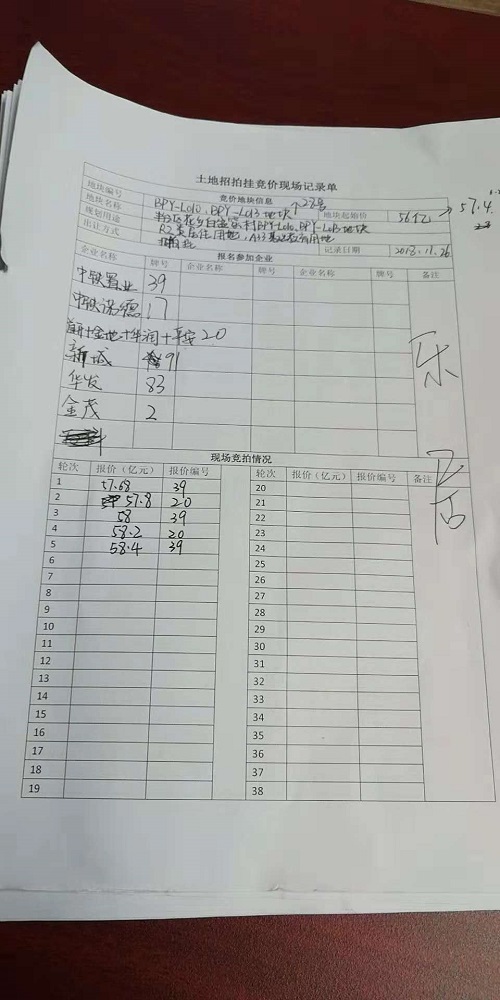 土地招拍挂竞价现场记录单
竞价地块信息
地块编号 BPY-L010、BPY-L013地块 28号
地块名称 BPY-L010、BPY-L013地块 地块起始价 56亿 → 57.4
规划用途 R2 A33基础教育用地
出让方式 记录日期 2018.11.26
报名参加企业
企业名称 牌号 企业名称 牌号 企业名称 牌号 备注
中铁置业 39
中铁诺德 17
首开+金地+华润+平安 20
新城 91
华发 83
金茂 2
现场竞拍情况
轮次 报价(亿元) 报价编号 轮次 报价(亿元) 报价编号 备注
1 57.68 39 20
2 57.8 20 21
3 58 39 22
4 58.2 20 23
5 58.4 39 24
6 25
7 26
8 27
9 28
10 29
11 30
12 31
13 32
14 33
15 34
16 35
17 36
18 37
19 38